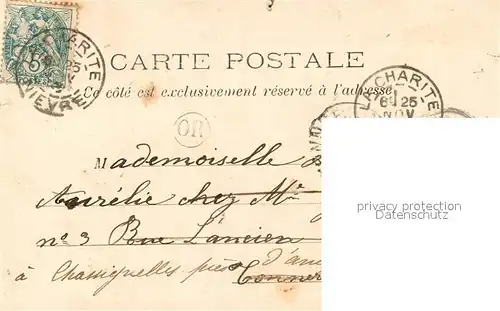 LA CHARITE
25
NIEVRE
5
CARTE POSTALE
Ce côté est exclusivement réservé à l'adresse
LA CHARITE
6E 25
NOV
OR
Mademoiselle
Aurélie chez Me
n° 3 Rue Lancien
à Chassignelles près d'
privacy protection
Datenschutz